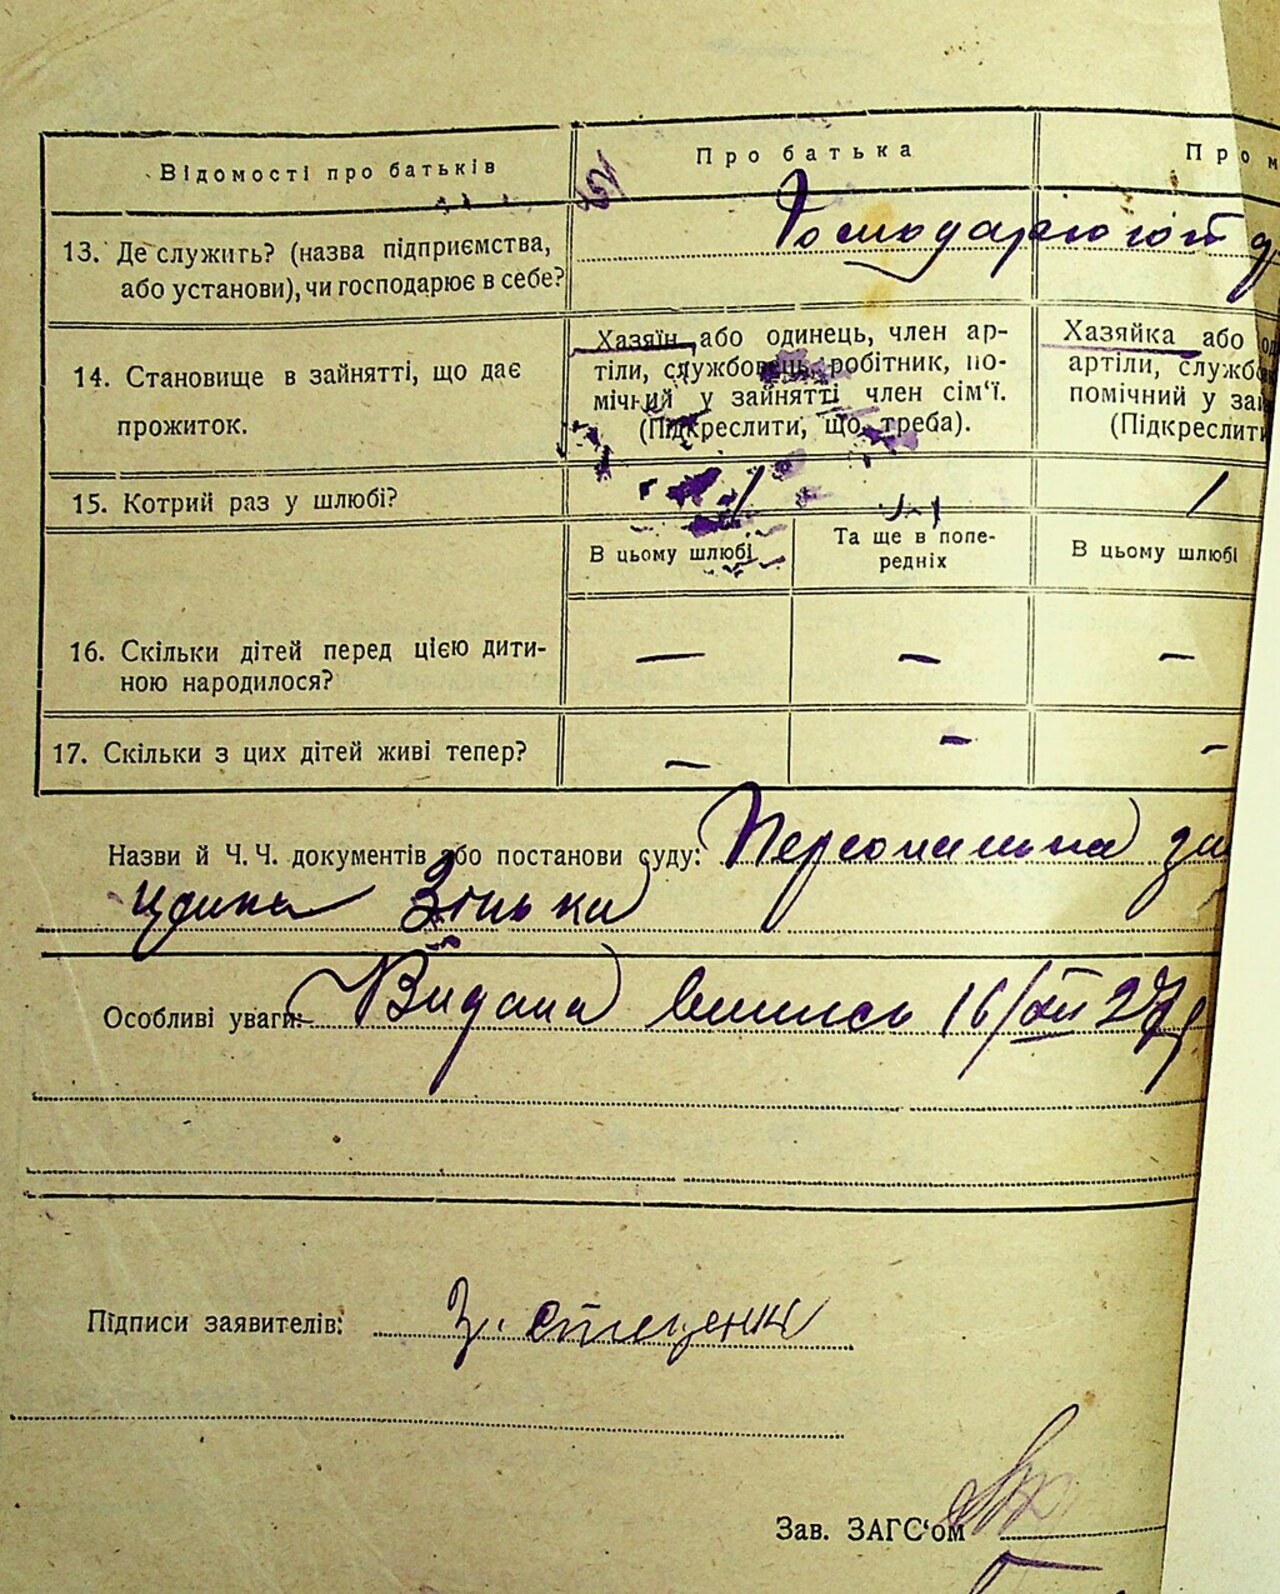 Відомості про батьків
Про батька
Про м
13. Де служить? (назва підприємства,
або установи), чи господарює в себе?
Господарюють
14. Становище в зайнятті, що дає
прожиток.
Хазяїн або одинець, член ар-
тіли, службовець, робітник, по-
мічний у зайнятті член сім'ї.
(Підкреслити, що треба).
Хазяйка або
артіли, служб
помічний у за
(Підкреслит
15. Котрий раз у шлюбі?
1
1
В цьому шлюбі
Та ще в попе-
редніх
В цьому шлюбі
16. Скільки дітей перед цією дити-
ною народилося?
— — —
17. Скільки з цих дітей живі тепер?
— — —
Назви й Ч. Ч. документів або постанови суду: Персональна
Зінька
Особливі уваги: Видана випись 16/XII 27р
Підписи заявителів: З. Стеценко
Зав. ЗАГС'ом